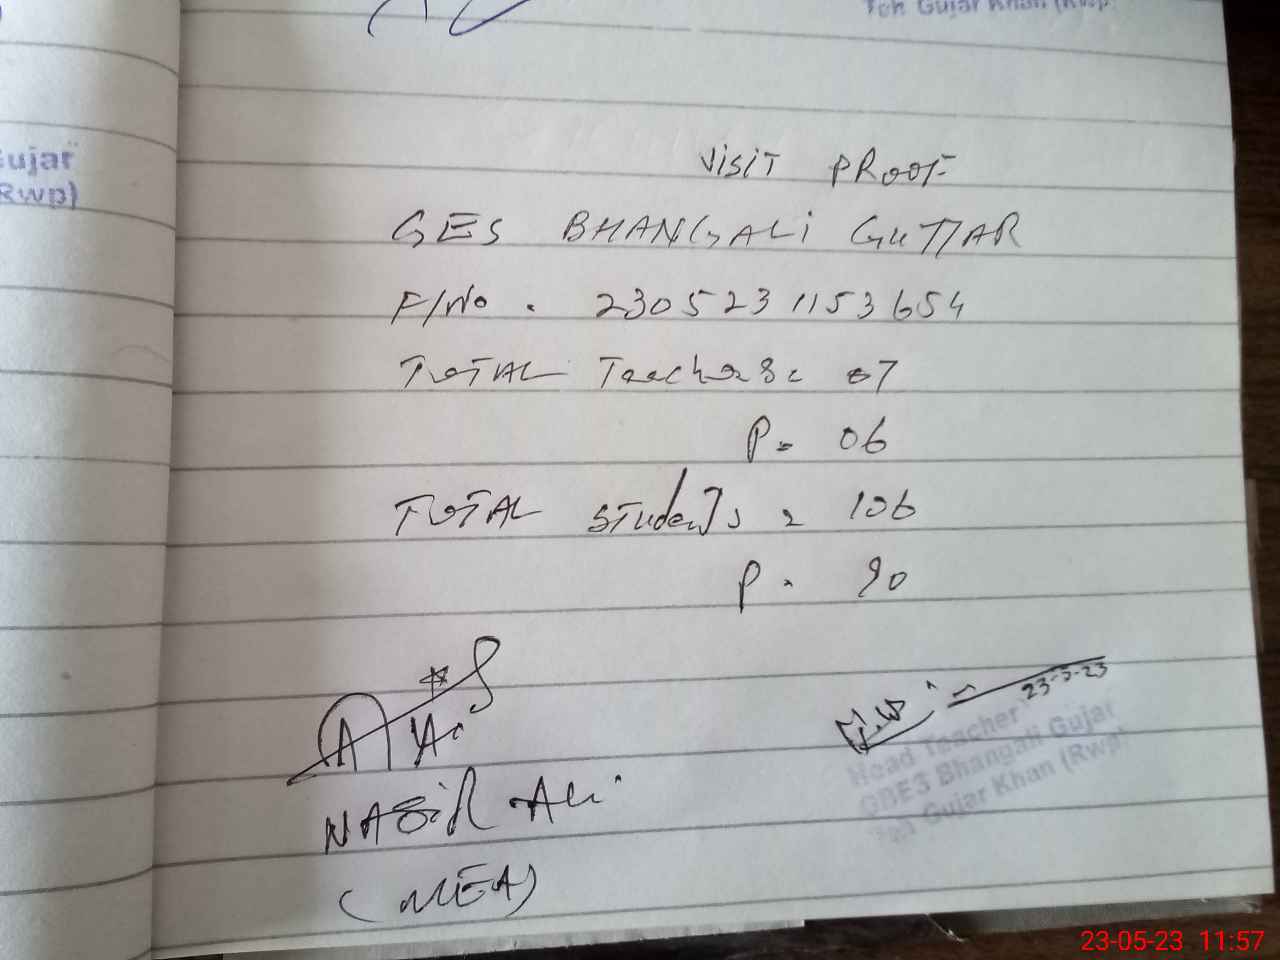 Teh Gujar Khan (Rwp)
Gujar
Rwp)
VISIT PROOF
GES BHANGALI GUJJAR
F/No. 2305231153654
TOTAL Teachers: 07
P= 06
TOTAL Students = 106
P. 90
23-5-23
Head Teacher
GBES Bhangali Gujar
Teh Gujar Khan (Rwp)
NASIR Ali
(MEA)
23-05-23 11:57